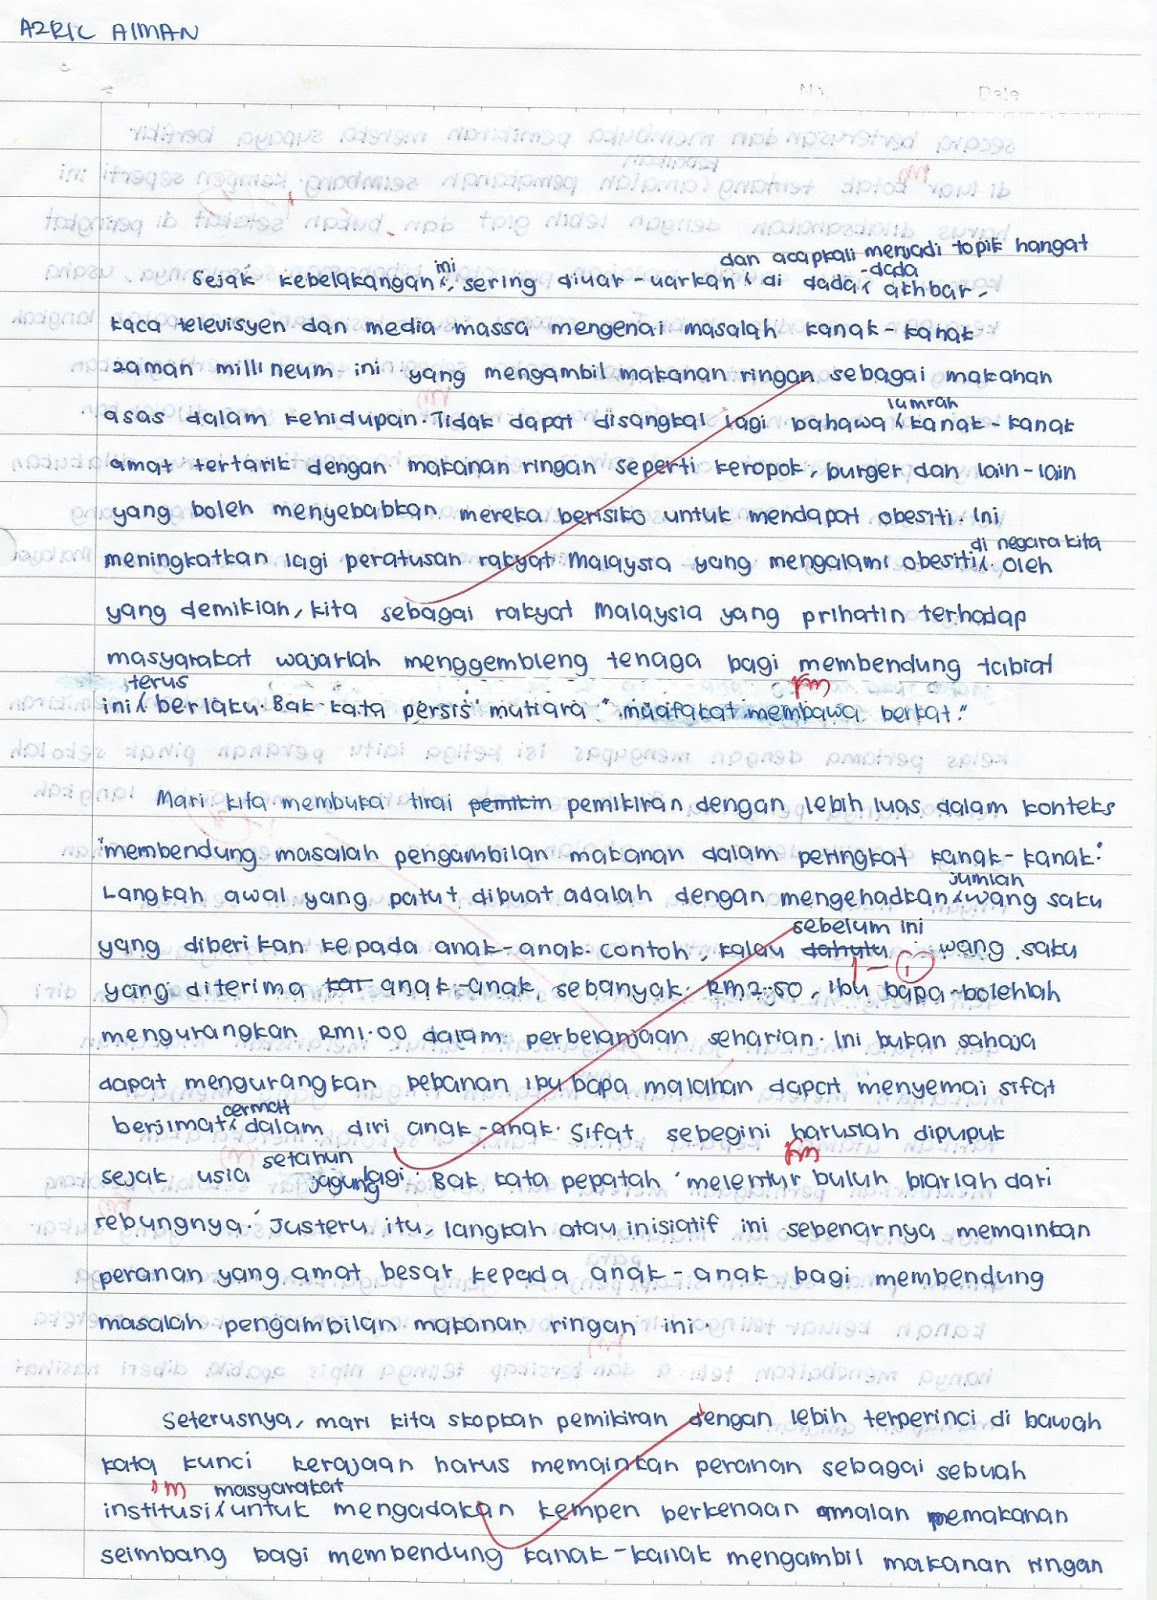 AZRIC AIMAN
No.
Date
dan acapkali menjadi topik hangat
Sejak kebelakangan ini, sering diuar-uarkan di dada-dada akhbar,
kaca televisyen dan media massa mengenai masalah kanak-kanak
zaman millineum ini yang mengambil makanan ringan sebagai makanan
asas dalam kehidupan. Tidak dapat disangkal lagi bahawa lumrah kanak-kanak
amat tertarik dengan makanan ringan seperti keropok, burger dan lain-lain
yang boleh menyebabkan mereka berisiko untuk mendapat obesiti. Ini
meningkatkan lagi peratusan rakyat Malaysia yang mengalami obesiti di negara kita. Oleh
yang demikian, kita sebagai rakyat Malaysia yang prihatin terhadap
masyarakat wajarlah menggembleng tenaga bagi membendung tabiat
ini terus berlaku. Bak kata persis mutiara "muafakat membawa berkat."
Mari kita membuka tirai pemikin pemikiran dengan lebih luas dalam konteks
'membendung masalah pengambilan makanan dalam peringkat kanak-kanak.'
Langkah awal yang patut dibuat adalah dengan mengehadkan jumlah wang saku
yang diberikan kepada anak-anak. Contoh, kalau dahulu sebelum ini wang saku
yang diterima kat anak-anak, sebanyak RM2.50, ibu bapa bolehlah
mengurangkan RM1.00 dalam perbelanjaan seharian. Ini bukan sahaja
dapat mengurangkan bebanan ibu bapa malahan dapat menyemai sifat
berjimat cermat dalam diri anak-anak. Sifat sebegini haruslah dipupuk
sejak usia setahun jagung lagi. Bak kata pepatah 'melentur buluh biarlah dari
rebungnya.' Justeru itu, langkah atau inisiatif ini sebenarnya memainkan
peranan yang amat besar kepada anak-anak bagi membendung
masalah pengambilan makanan ringan ini.
Seterusnya, mari kita skopkan pemikiran dengan lebih terperinci di bawah
kata kunci kerajaan harus memainkan peranan sebagai sebuah
institusi masyarakat untuk mengadakan kempen berkenaan amalan pemakanan
seimbang bagi membendung kanak-kanak mengambil makanan ringan